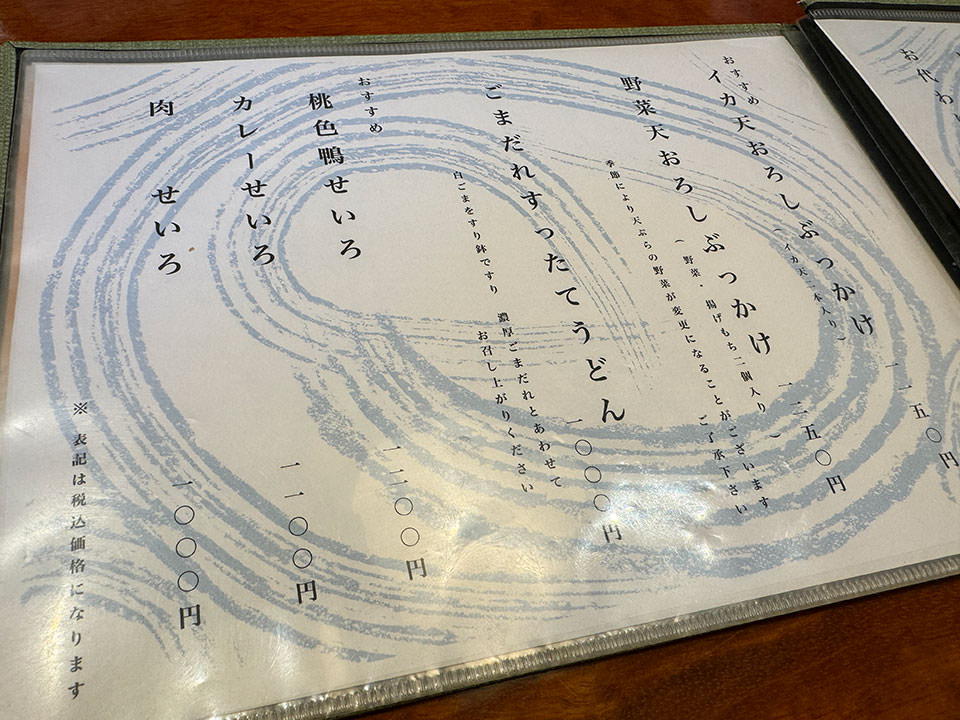 お代わ
おすすめ
イカ天おろしぶっかけ
(イカ天一本入り)
一一五〇円
野菜天おろしぶっかけ
(野菜・揚げもち二個入り)
一二五〇円
季節により天ぷらの野菜が変更になることがございます
ご了承下さい
ごまだれすったてうどん
一〇〇〇円
白ごまをすり鉢ですり 濃厚ごまだれとあわせて
お召し上がりください
おすすめ
桃色鴨せいろ
一二〇〇円
カレーせいろ
一一〇〇円
肉 せいろ
一〇〇〇円
※ 表記は税込価格になります